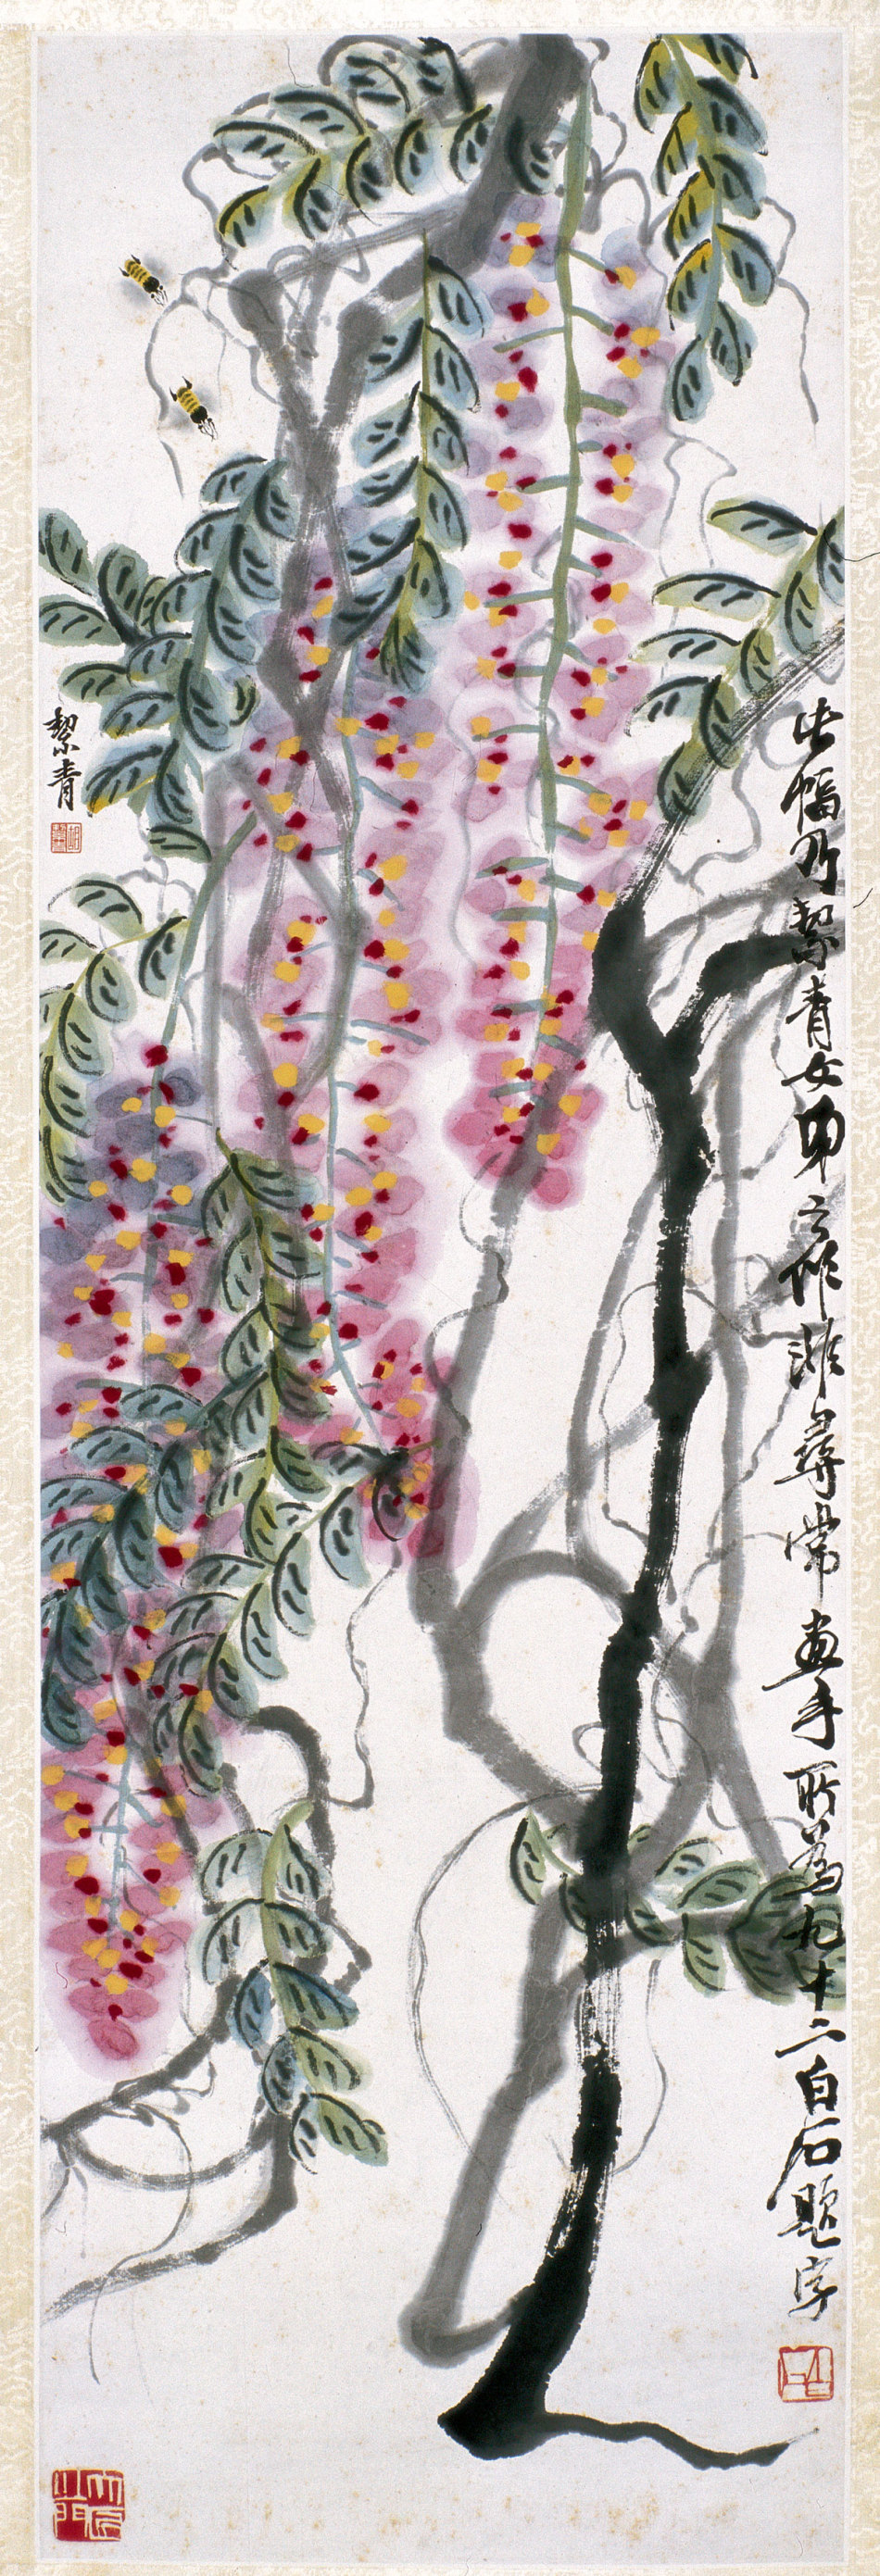 此幅乃絜青女弟之作非尋常畫手所爲九十二白石題字
絜青